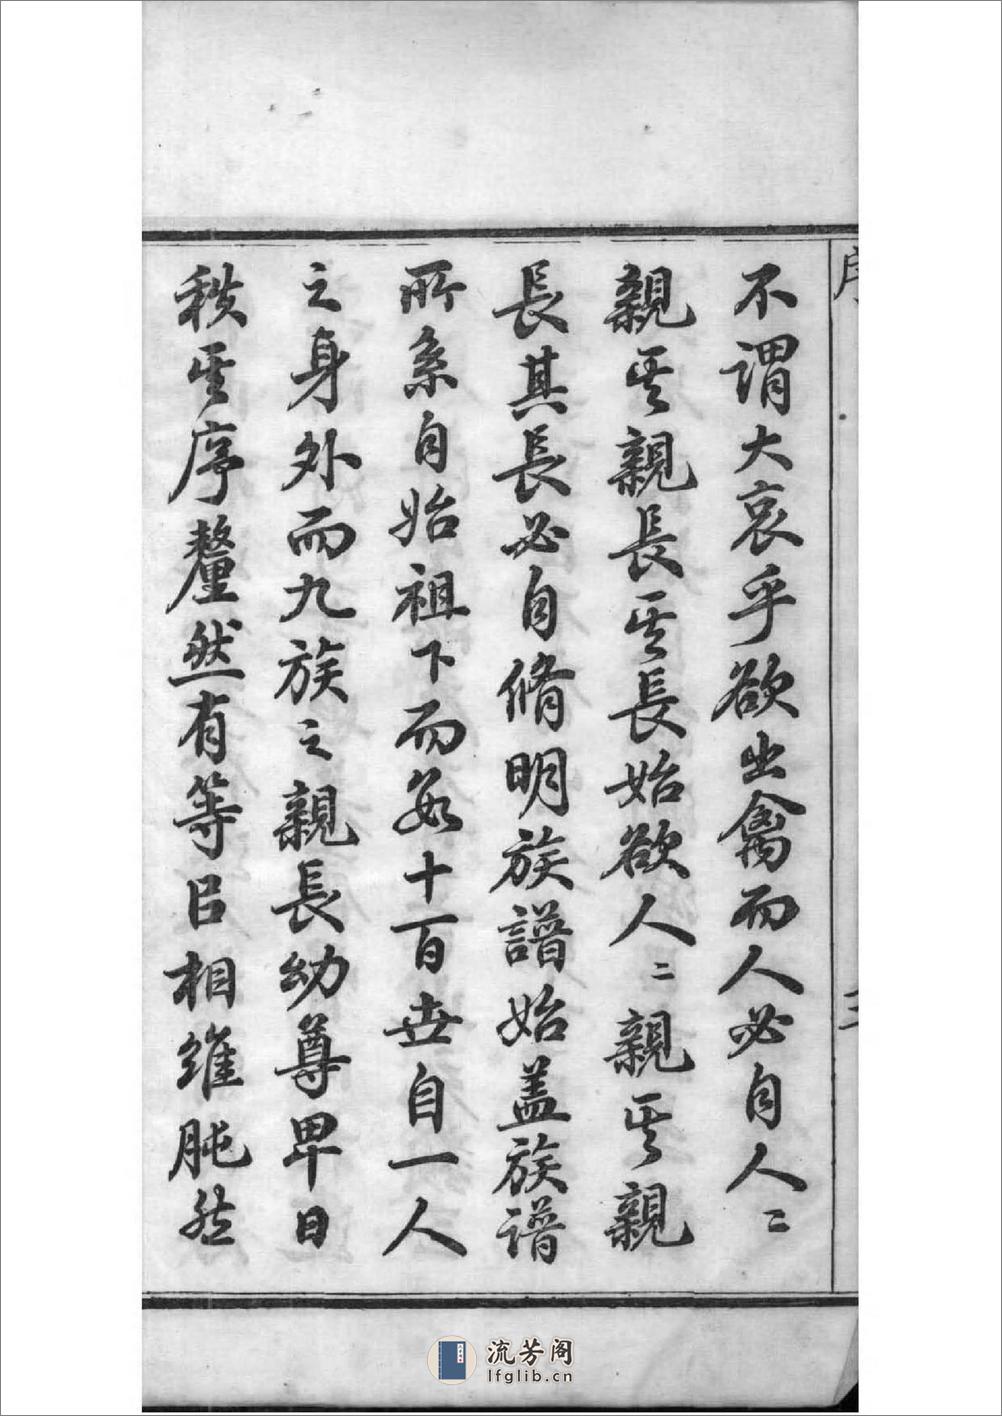 序
三
不謂大哀乎欲出禽而人必自人〻
親其親長其長始欲人〻親其親
長其長必自脩明族譜始盖族譜
所系自始祖下而每十百世自一人
之身外而九族之親長幼尊卑日
秩其序釐然有等㠯相維肫然
流芳阁
lfglib.cn